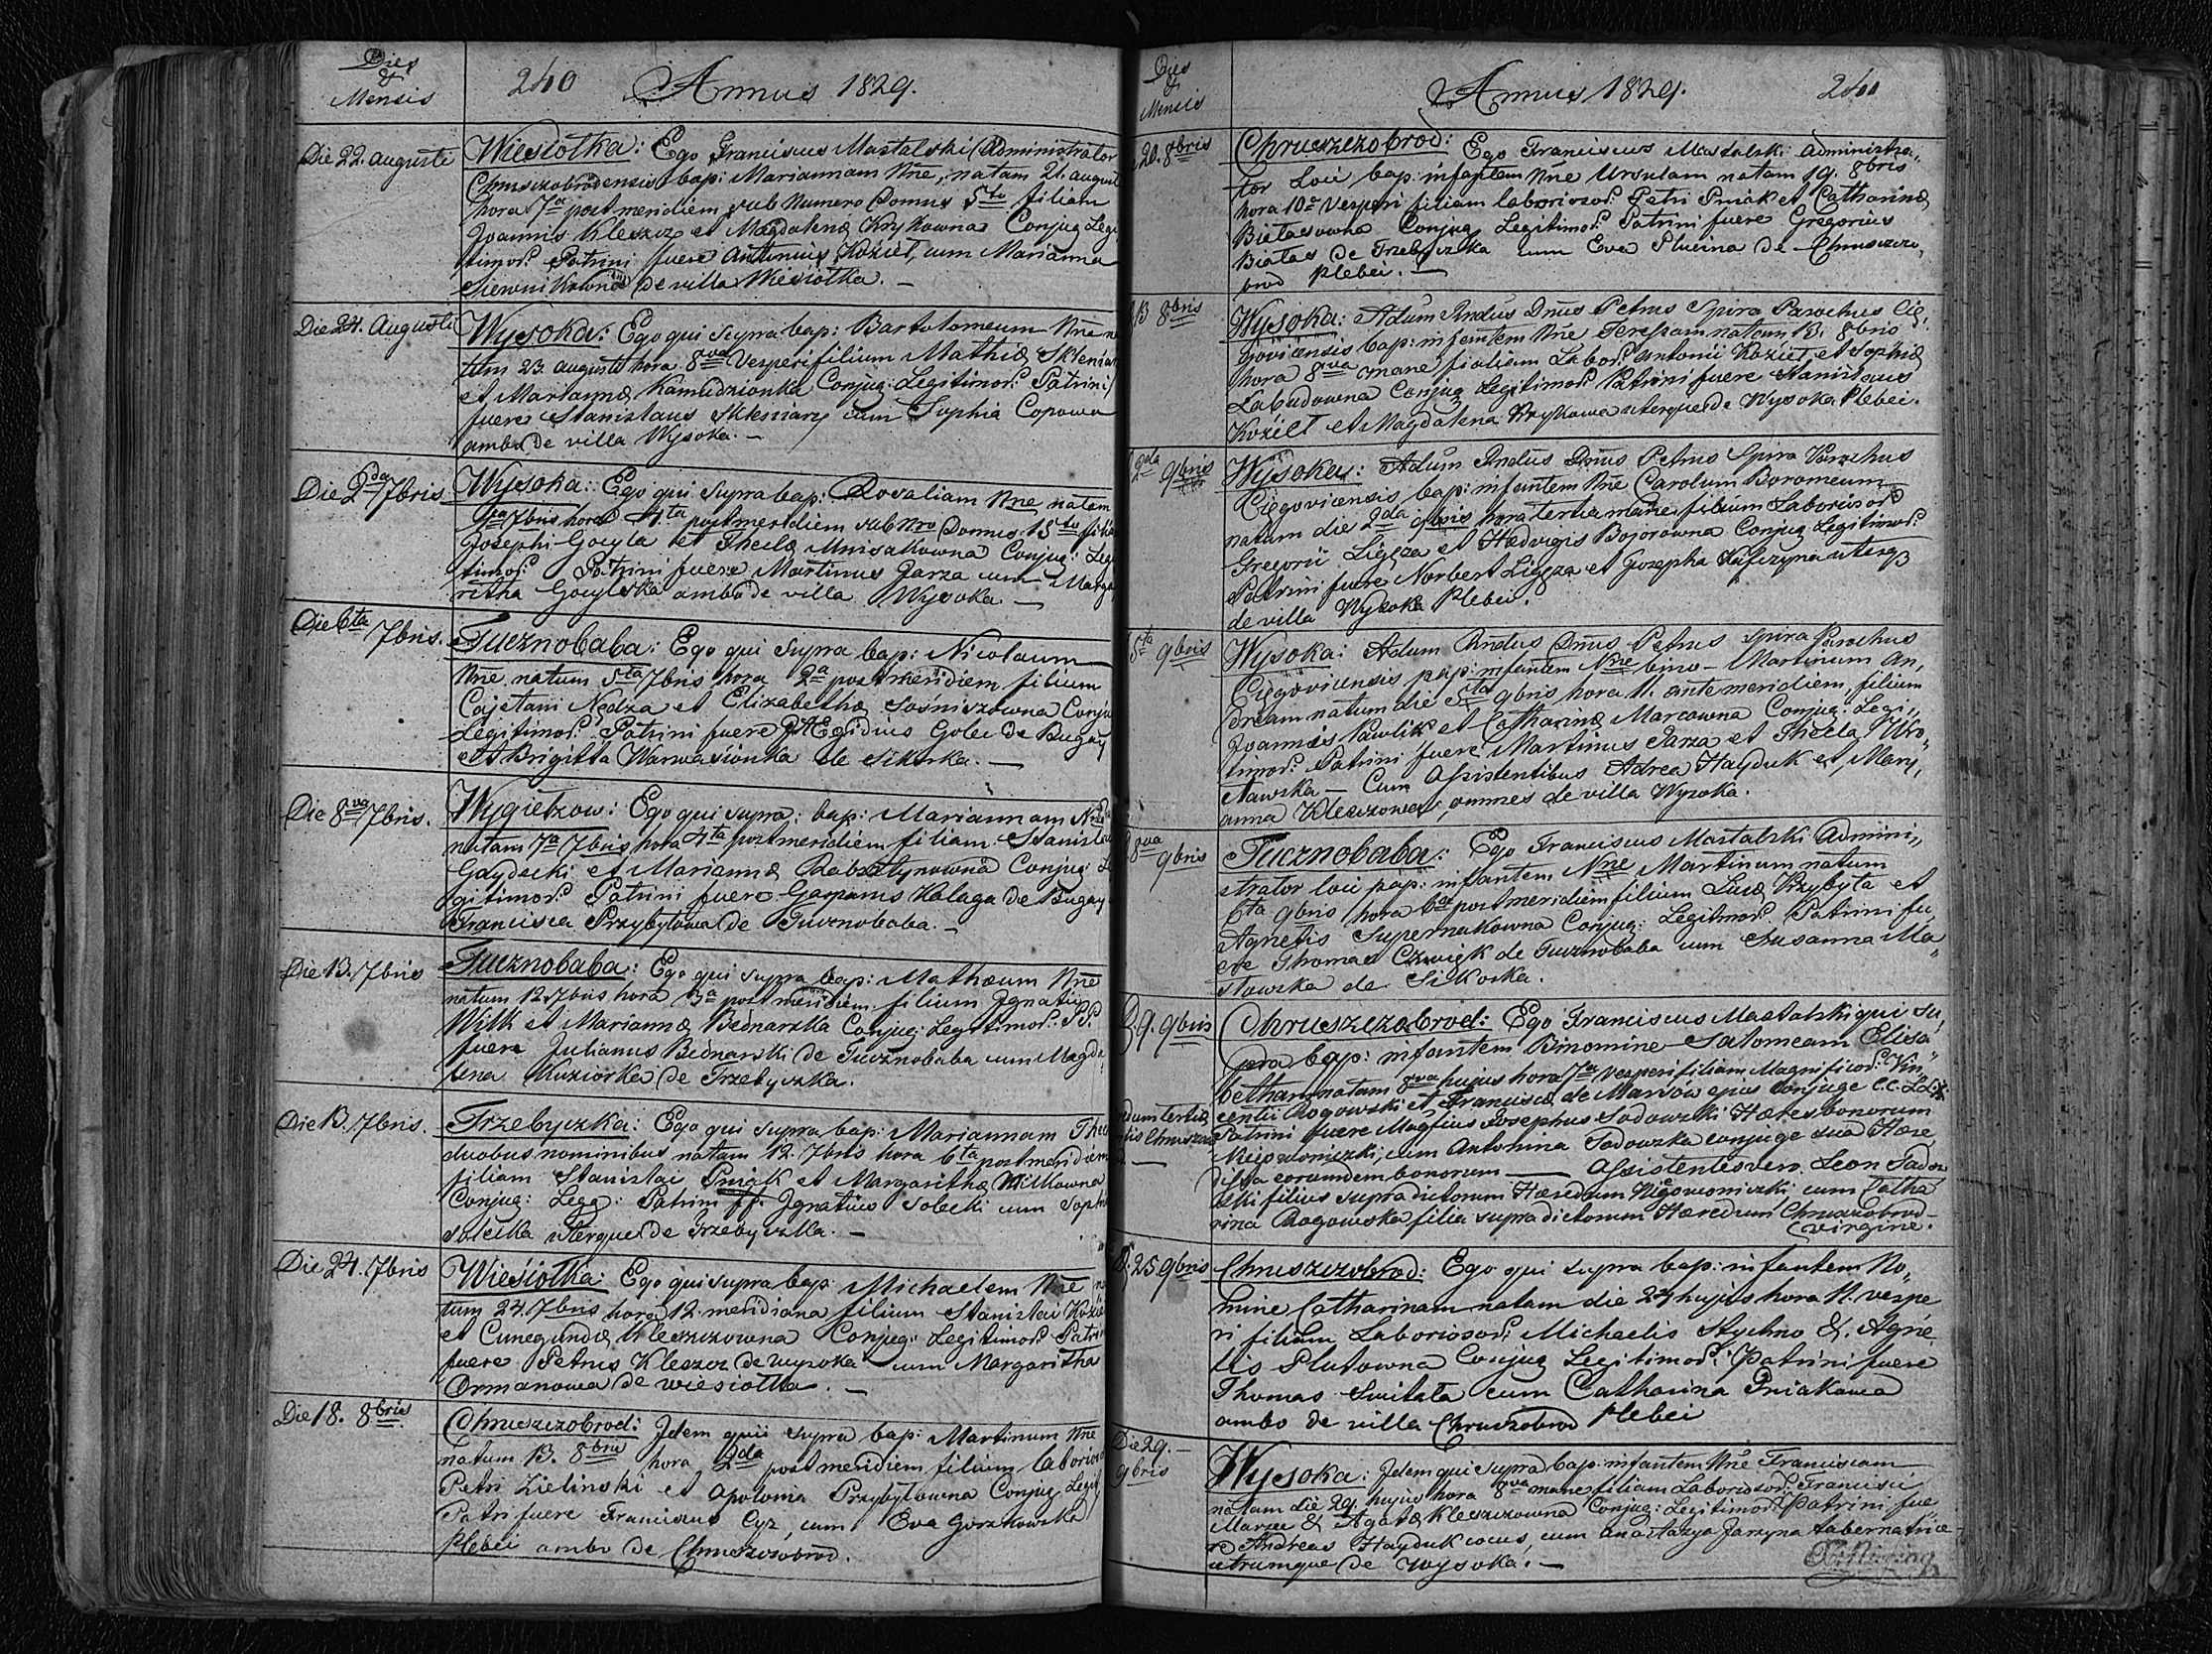 Dies
&
Mensis
240 Annus 1829.
Die 22. augusti
Wiesiołka: Ego Franciscus Mastalski Administrator
Chruszobrodensis bap: Mariannam Nne, natam 21. august
hora 7a post meridiem sub Numero Domus 5to filiam
Joannis Kleszcz et Magdalenæ Krykowna Conjug Legi
timor: Patrini fuere Antonius Kozieł, cum Marianna
de villa Wiesiołka. —
Die 24. Augusti
Wysoka: Ego qui supra bap: Bartolomeum Nne na
tum 23 augusti hora 8va Vesperi filium Mathiæ
et Mariannæ Kamudzionka Conjug: Legitimor: Patrini
fuere Stanislaus cum Sophia Copowa
ambo de villa Wysoka. —
Die 2da 7bris
Wysoka: Ego qui supra bap: Rosaliam Nne natam
1ma 7bris hora 4ta post meridiem sub Nro Domus 15to filia
Josephi Gocyla et Theclæ Mnisakowna Conjug: Leg
timor: Patrini fuere Martinus Jarza cum Marga
retha Gocylska ambo de villa Wysoka. —
Die 6ta 7bris.
Tucznobaba: Ego qui supra bap: Nicolaum
Nne natum 5ta 7bris hora 2a post meridiem filium
Cajetani Nędza et Elizabethæ Sosniszowna Conju
Legitimor: Patrini fuere Ægidius Golec de Bugay
et Brigitta Warwasionka de Sikorka. —
Die 8va 7bris.
Wygiełzow: Ego qui supra: bap: Mariannam Nne
natam 7a 7bris hora 4ta post meridiem filiam Stanislai
Gaydecki et Mariannæ Rabsztynowna Conjug: Le
gitimor: Patrini fuere Gasparus Kalaga de Bugay
Francisca Przybyłowa de Tucznobaba. —
Die 13. 7bris
Tucznobaba: Ego qui supra bap: Mathæum Nne
natum 12. 7bris hora 3a post meridiem filium Ignatii
Wilk et Mariannæ Bednarzka Conjug: Legitimor: P.P.
fuere Julianus Bednarski de Tucznobaba cum Magda
lena Kuziorka de Trzebyczka.
Die 13. 7bris.
Trzebyczka: Ego qui supra bap: Mariannam Thec
duobus nominibus natam 12. 7bris hora 6ta post meridiem
filiam Stanislai Pniak et Margarithæ Wilkowna
Conjug: Legg: Patrini ff. Ignatius Solecki cum Soph
Solecka uterque de Trzebyczka. —
Die 24. 7bris
Wiesiołka: Ego qui supra bap: Michaelem Nne na
tum 24. 7bris hora 12. meridiana filium Stanislai Kozie
et Cunegundæ Kleszczowna Conjug: Legitimor: Patri
fuere Petrus Kleszcz de wysoka cum Margaritha
Ormanowa de wiesiołka. —
Die 18. 8bris
Chruszczobrod: Idem qui supra bap: Martinum Nne
natum 13. 8bris hora 2da post meridiem filium laborios
Petri Zielinski et Apolonia Przybyłowna Conjug Legit
Patri fuere Franciscus Cyz, cum Eva Gorzkowska
Plebei ambo de Chruszczobrod.
Dies
&
Mensis
Annus 1829.
20. 8bris
Chruszczobrod: Ego Franciscus Mastalski Administra„
tor Loci bap: infantem Nne Ursulam natam 19. 8bris
hora 10a Vesperi filiam laboriosor: Petri Pniak et Catharinæ
Białasowna Conjug Legitimor: Patrini fuere Gregorius
Białas de Trzebyczka cum Eva Plucina de Chruszczo„
brod plebei. —
13 8bris
Wysoka: Adum Rndus Dnus Petrus Spira Parochus Cię„
goviensis bap: infantem Nne Teressiam natam 13. 8bris
hora 8va mane filiam Labor: Antonii Kozieł, et Sophiæ
Labudowna Conjug Legitimor: Patrini fuere Stanislaus
Kozieł et Magdalena Krykowa uterque de Wysoka Plebei.
2da 9bris
Wysoka: Adum Rndus Dnus Petrus Spira Parochus
Cięgoviensis bap: infantem Nne Carolum Boromeum
natum die 2da 9bris hora tertia mane filium Laboriosor:
Gregorii Ligęza et Hedvigis Bojorowna Conjug Legitimor:
Patrini fuere Norbert Ligęza et Jozepha Kafczyna uterq3
de villa Wysoka Plebei.
5ta 9bris
Wysoka: Adum Rndus Dnus Petrus Spira Parochus
Cięgoviensis pap: infantem Nne bino — Martinum An„
dream natum die 5ta 9bris hora 11. ante meridiem, filium
Joannis Pawlik et Catharinæ Marcowna Conjug: Legi„
timor: Patrini fuere Martinus Jarza et Thecla Wro„
cławska — Cum Assistentibus Adrea Hayduk et Mary„
anna Kleszczowa, omnes de villa Wysoka.
8va 9bris
Tucznobaba: Ego Franciscus Mastalski Admini„
strator loci pap: infantem Nne Martinum natum
6ta 9bris hora 6a post meridiem filium Lucæ Przybyła et
Agnetis Supernakowna Conjug: Legitimor: Patrini fu„
ere Thomas Czwięk de Tucznobaba cum Susanna Ma„
słowska de Sikorka.
D. 9. 9bris
Chruszczobrod: Ego Franciscus Mastalski qui su„
pra bap: infantem Binomine Salomeam Elisa„
betham natam 8va hujus hora 7a Vesperi filiam Magnificor: Vin„
centii Rogowski et Franciscæ de Marsów ejus conjuge C.C. L.L.
Patrini fuere Magfius Josephus Sadowski Hæres bonorum
Niegowoniczki, cum Antonina Sadowska conjuge sua Hære„
dissa eorumdem bonorum — Assistentes vero Leon Sadow
ski filius supra dictorum Hæredum Niegowoniczki cum Catha
rina Rogowska filia supra dictorum Hæredum Chruszczobrod —
virgine.
D. 25 9bris
Chruszczobrod: Ego qui supra bap: infantem No„
mine Catharinam natam die 24 hujus hora 11. vespe
ri filiam Laboriosor: Michaelis Stychno &. Agne
tis Plutowna Conjug Legitimor: Patrini fuere
Thomas Switała cum Catharina Pniakowa
ambo de villa Chruszobrod Plebei
Die 29. —
9bris
Wysoka: Idem qui supra bap: infantem Nne Franciscam
natam die 29. hujus hora 8va mane filiam Laboriosor: Francisci
Marzec & Agatæ Kleszczowna Conjug: Legitimor: Patrini fue
re Andreas Hayduk cocus, cum Anastazya Jarzyna tabernatrice
utrumque de Wysoka. —